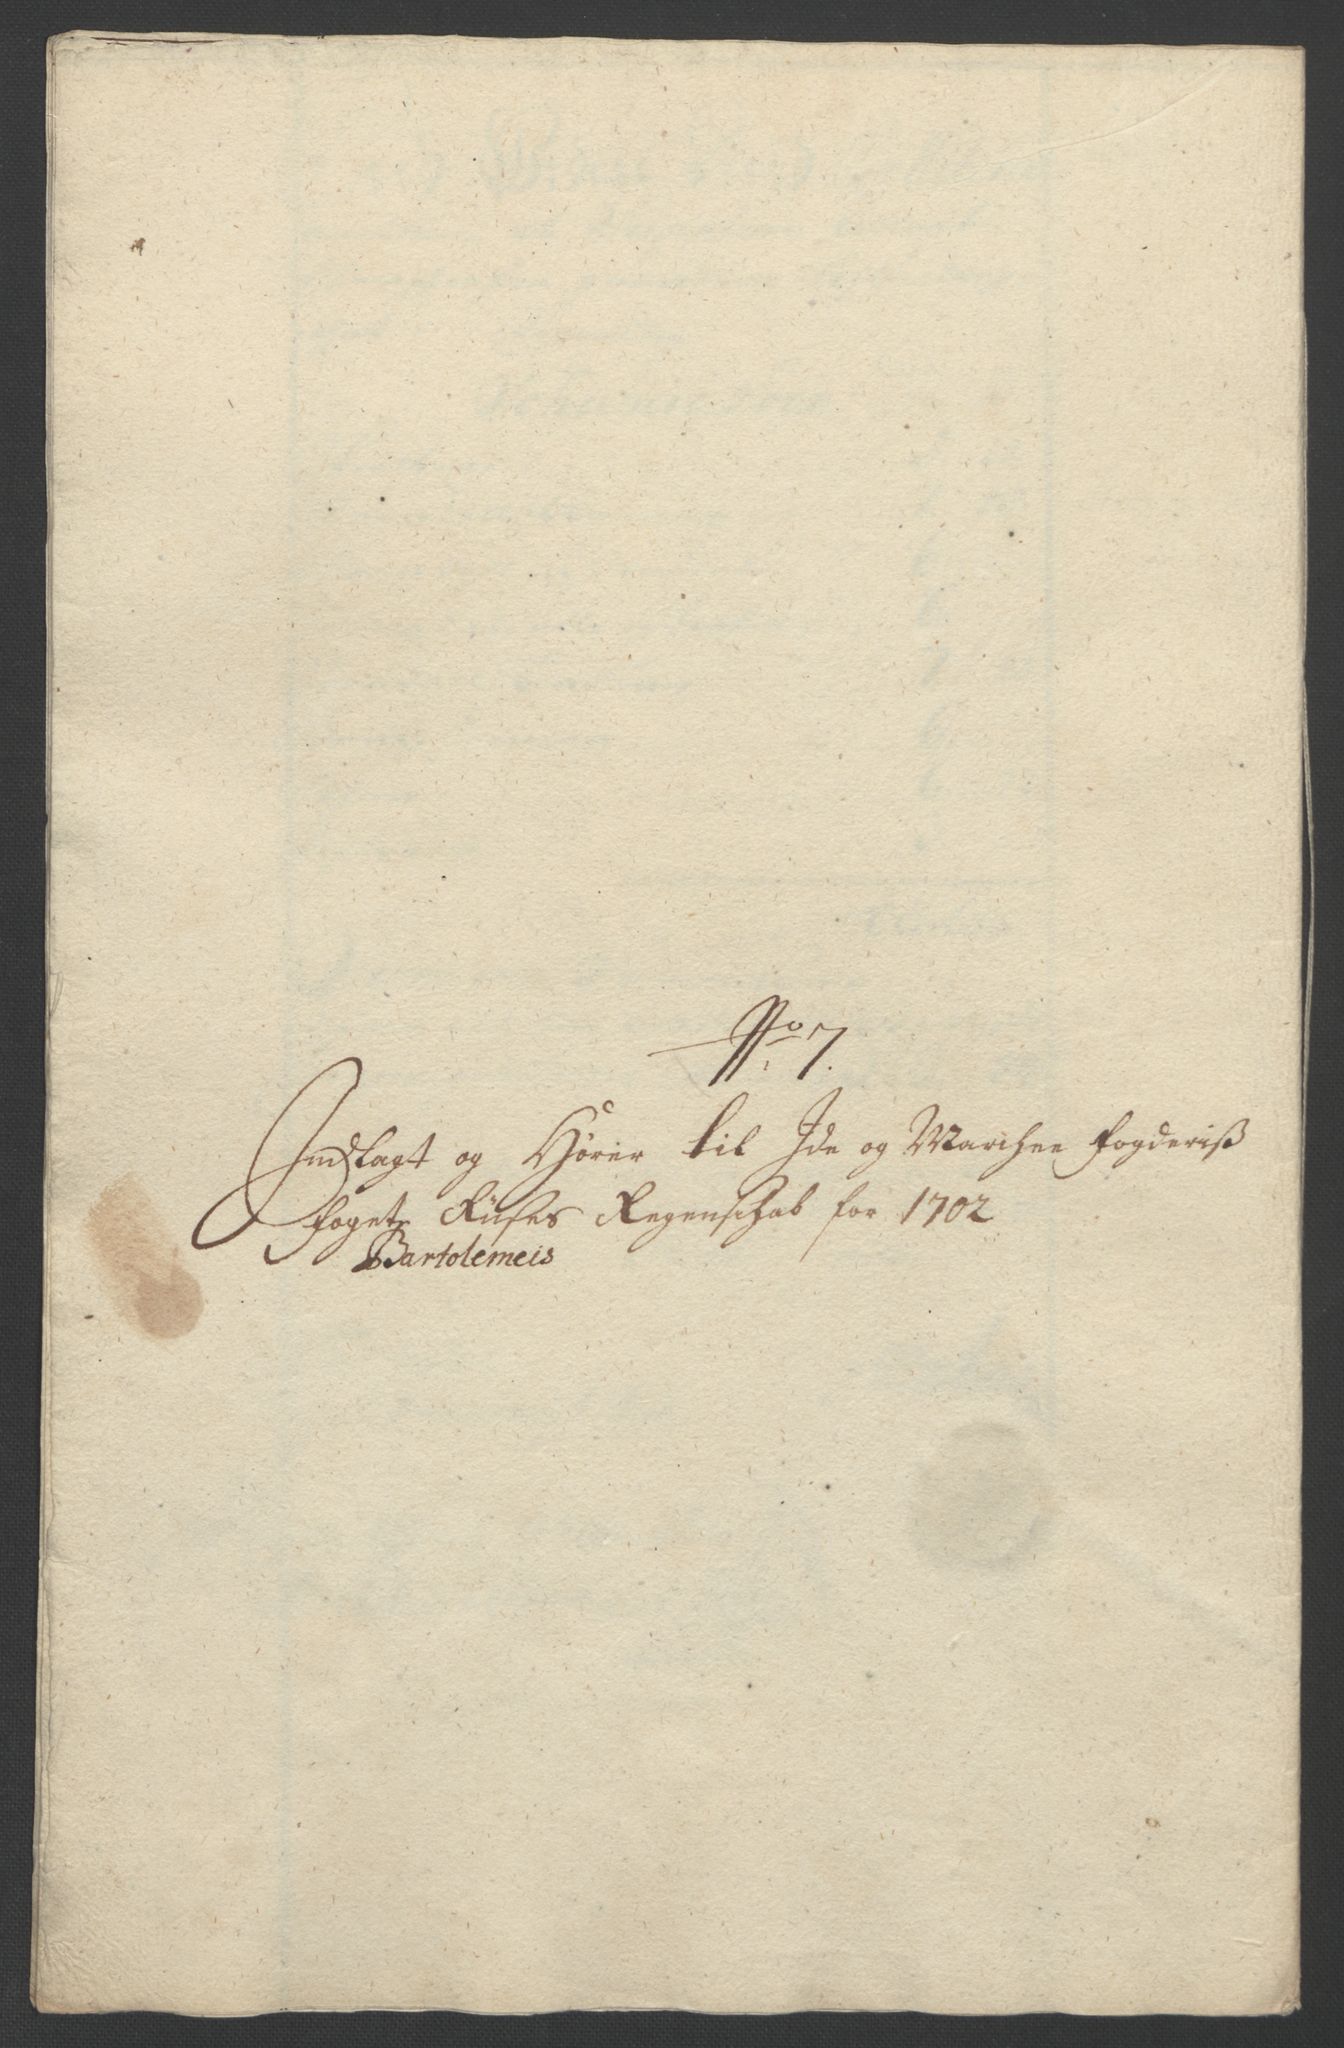 No 7.
Indlagt og Hører til Ide og Marchee fogderiß
foget Ruses Regenschab for 1702
Bartolemeis